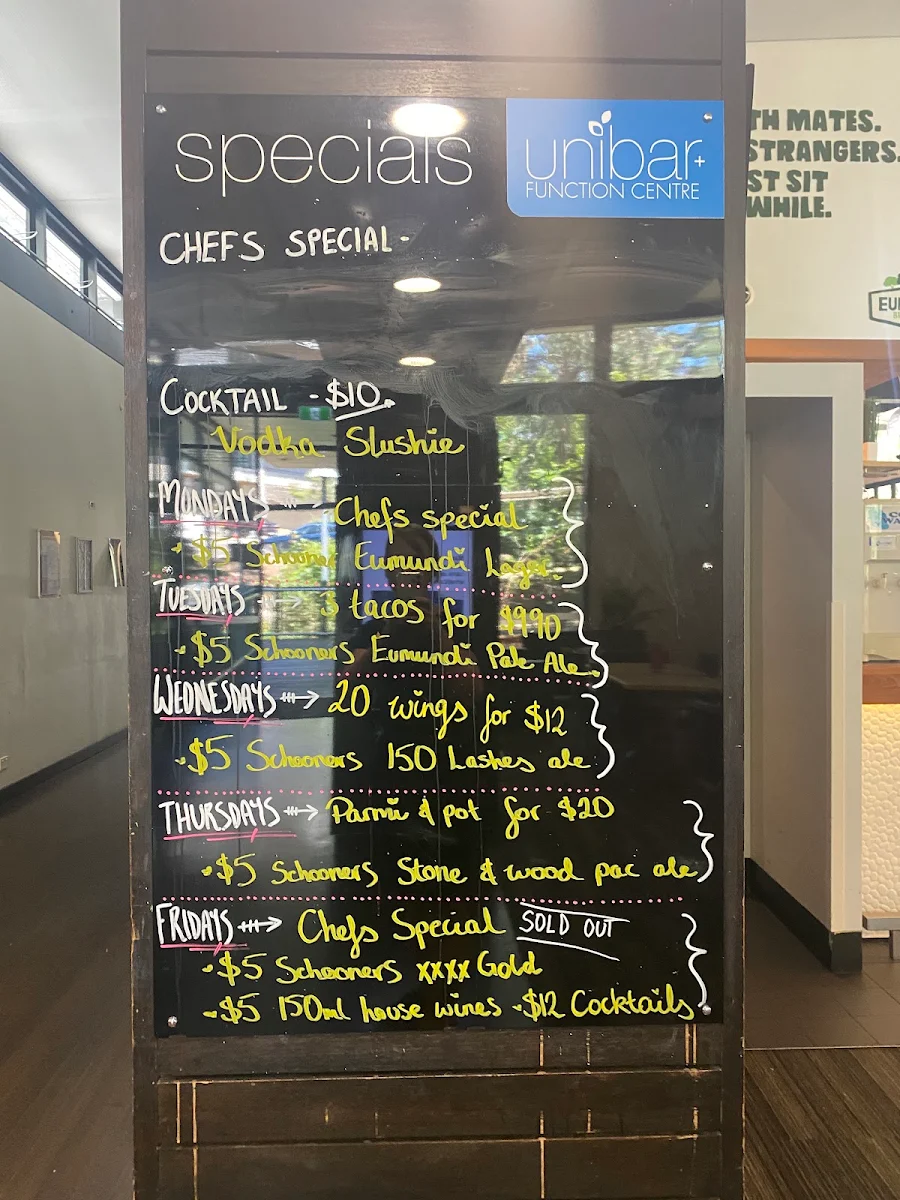 specials
unibar+
FUNCTION CENTRE
TH MATES.
STRANGERS.
ST SIT
WHILE.
CHEFS SPECIAL -
COCKTAIL - $10
Vodka Slushie
MONDAYS → Chefs special
• $5 Schooner Eumundi Lager.
TUESDAYS → 3 tacos for $990
• $5 Schooners Eumundi Pale Ale
WEDNESDAYS → 20 wings for $12
• $5 Schooners 150 Lashes ale
THURSDAYS → Parmi & pot for $20
• $5 Schooners Stone & wood pac ale
FRIDAYS → Chefs Special SOLD OUT
• $5 Schooners xxxx Gold
• $5 150ml house wines • $12 Cocktails